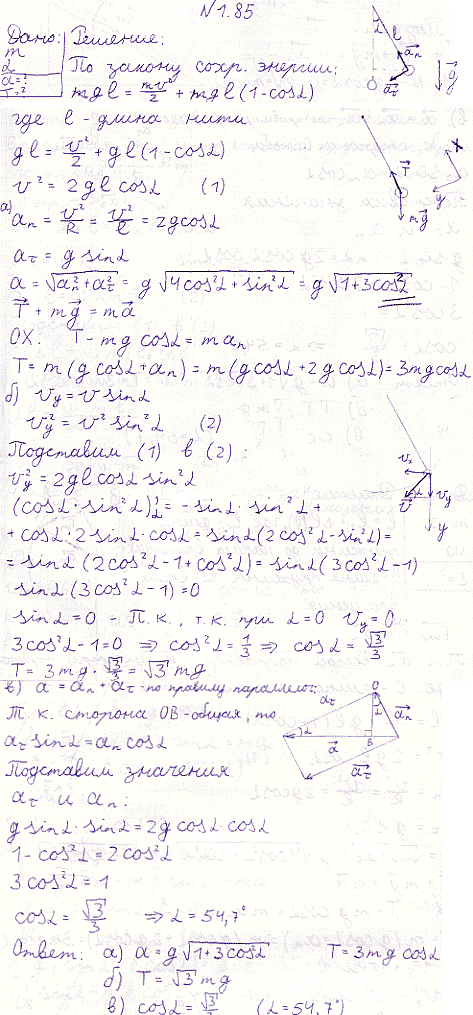 N 1.85
Дано: Решение:
m
α
a=?
T=?
По закону сохр. энергии:
mgl = mv²/2 + mgl(1-cosα)
где l - длина нити
gl = v²/2 + gl(1-cosα)
v² = 2gl cosα (1)
а) aₙ = v²/R = v²/l = 2gcosα
a_τ = g sinα
a = √(aₙ²+a_τ²) = g√(4cos²α+sin²α) = g√(1+3cos²α)
T⃗ + mg⃗ = ma⃗
OX: T - mg cosα = maₙ
T = m(g cosα+aₙ) = m(g cosα+2g cosα) = 3mg cosα
б) v_y = v sinα
v_y² = v² sin²α (2)
Подставим (1) в (2):
v_y² = 2gl cosα sin²α
(cosα·sin²α)'_α = -sinα·sin²α +
+ cosα·2sinα·cosα = sinα(2cos²α-sin²α) =
= sinα(2cos²α-1+cos²α) = sinα(3cos²α-1)
sinα(3cos²α-1)=0
sinα=0 - П.к., т.к. при α=0 v_y=0
3cos²α-1=0 ⇒ cos²α = 1/3 ⇒ cosα = √3/3
T = 3mg·√3/3 = √3 mg
в) a⃗ = a⃗ₙ+a⃗_τ - по правилу параллелог.
Т.к. сторона OB - общая, то
a_τ sinα = aₙ cosα
Подставим значения
a_τ и aₙ:
g sinα·sinα = 2g cosα·cosα
1-cos²α = 2cos²α
3cos²α = 1
cosα = √3/3 ⇒ α = 54,7°
Ответ: а) a = g√(1+3cos²α) T = 3mg cosα
б) T = √3 mg
в) cosα = √3/ (α = 54,7°)
α l
a⃗ₙ
a⃗_τ
g⃗
x
T⃗
y
mg⃗
vₓ
v⃗ α v_y
y
O
a_τ α a⃗ₙ
α
a⃗ B
a⃗_τ